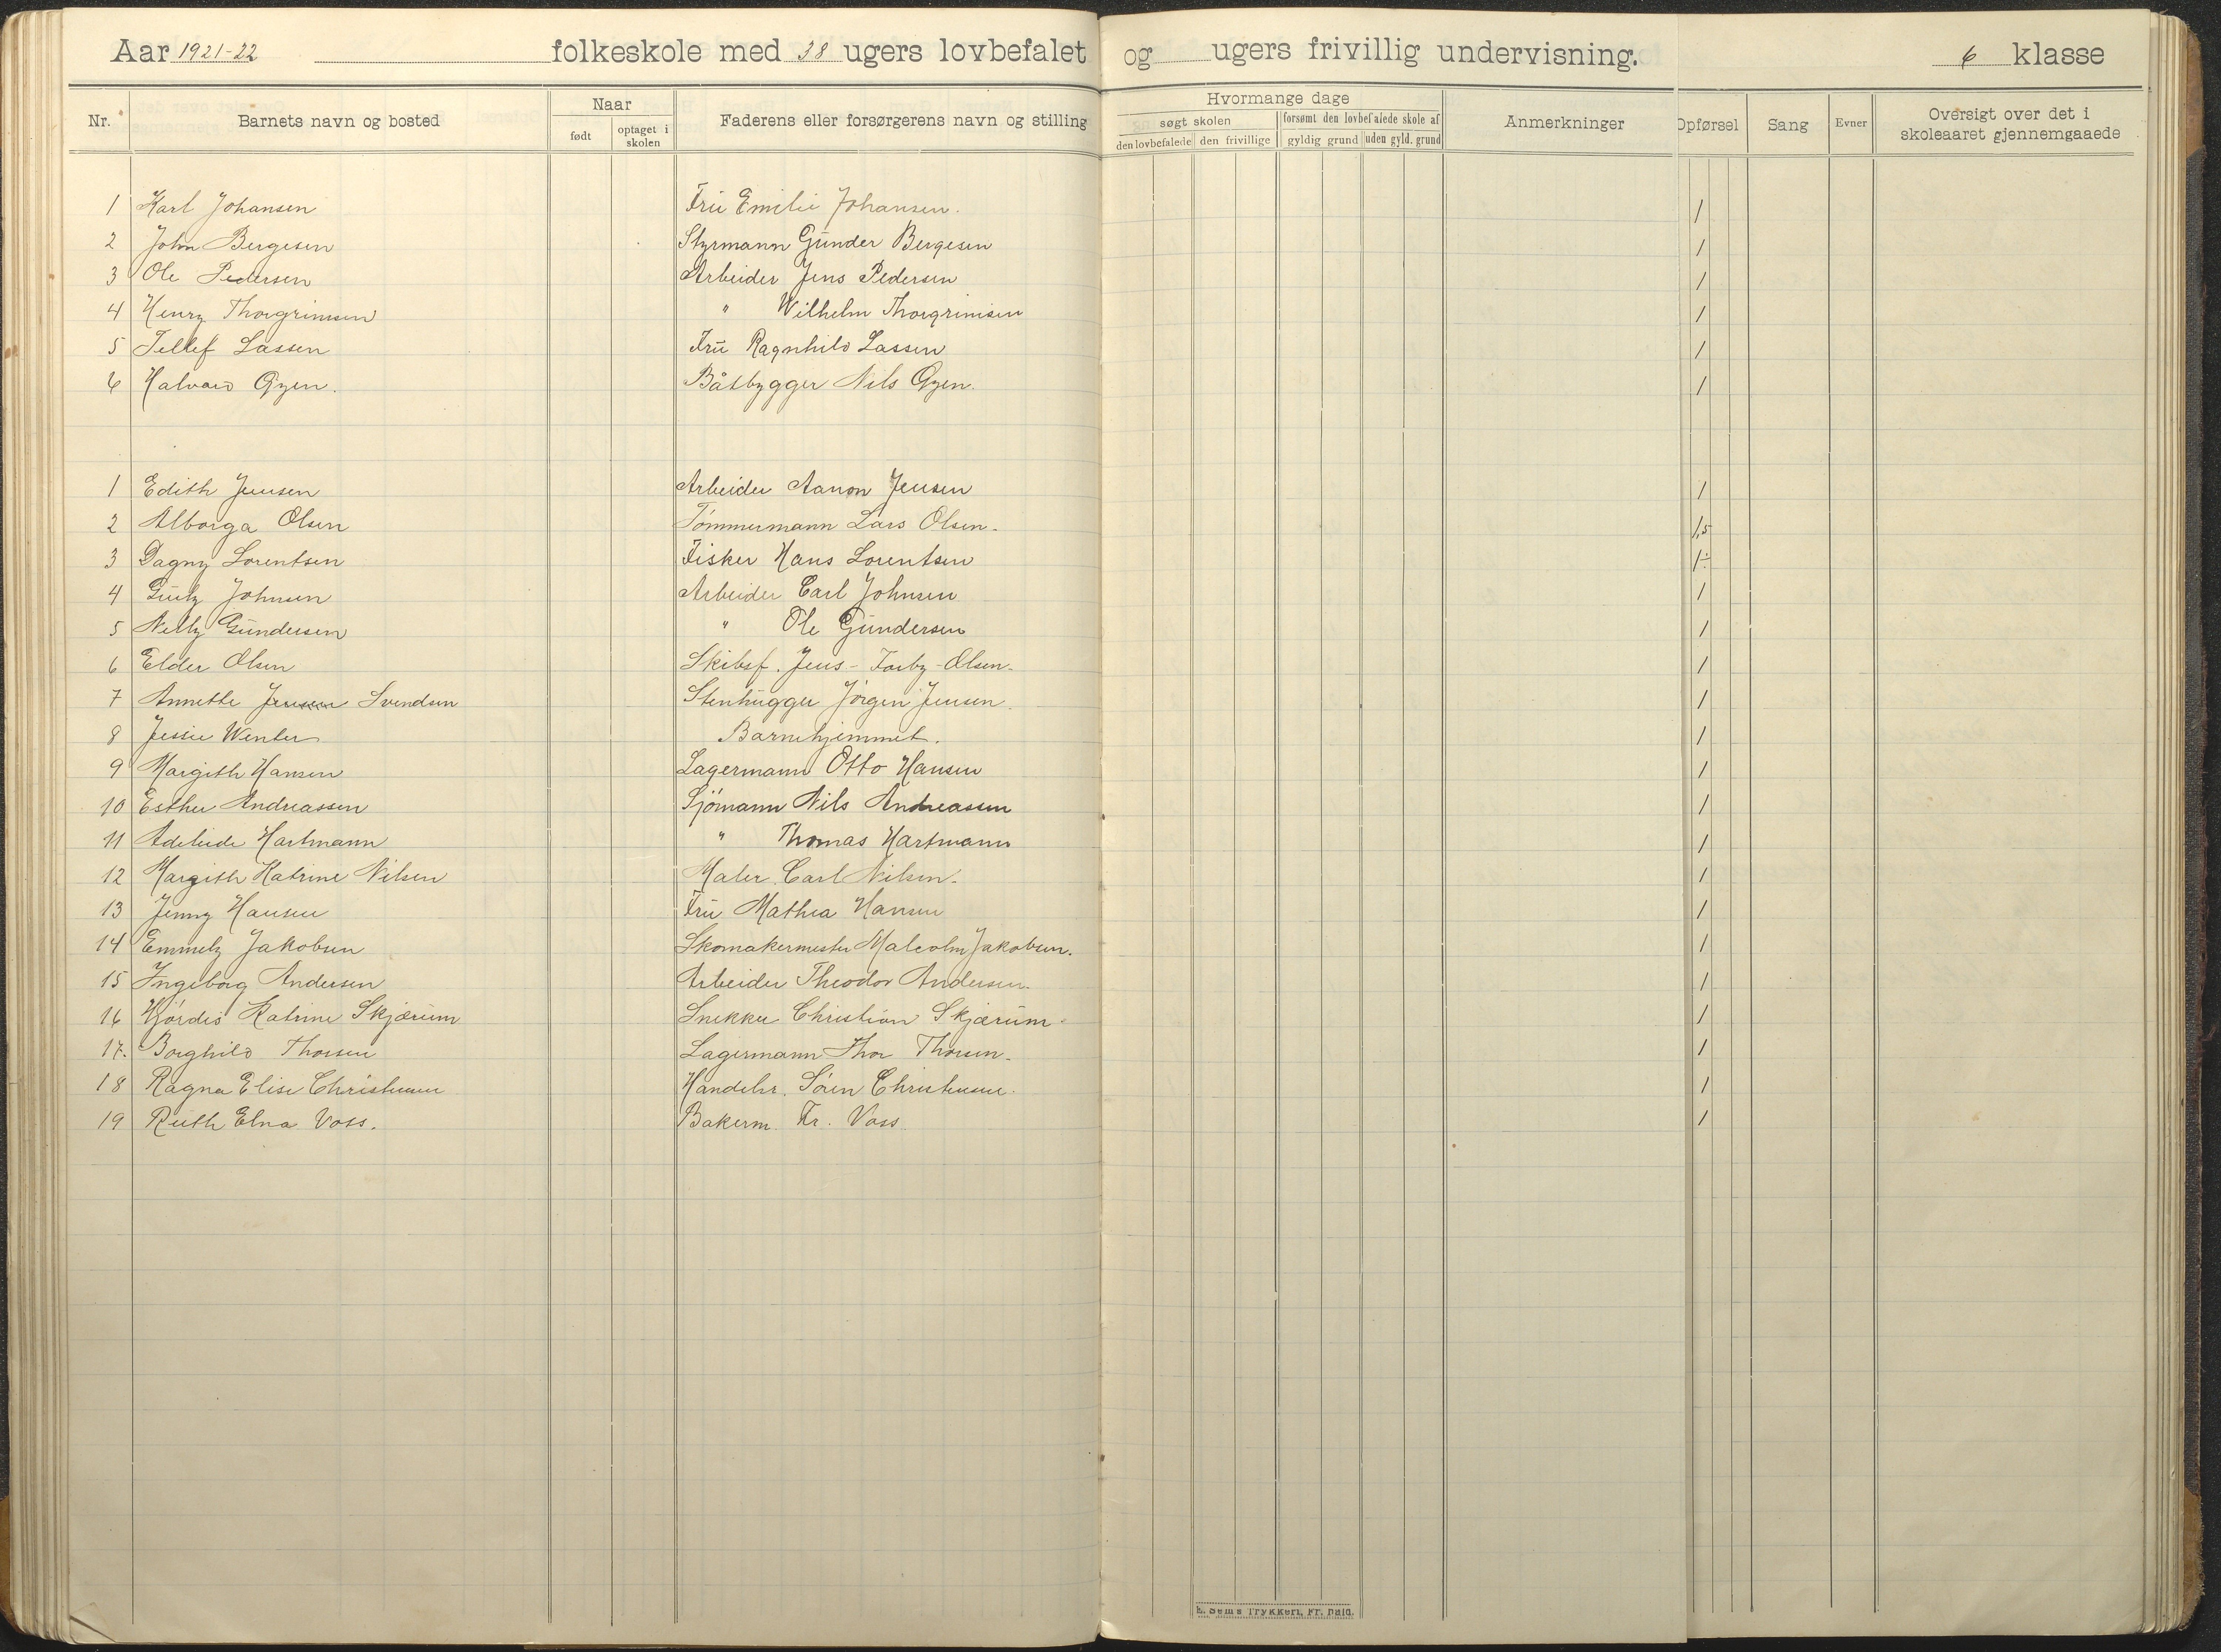 Aar 1921-22 folkeskole med 38 ugers lovbefalet og ugers frivillig undervisning. 6 klasse
Nr. Barnets navn og bosted Naar født optaget i skolen Faderens eller forsørgerens navn og stilling Hvormange dage søgt skolen den lovbefalede den frivillige forsømt den lovbefalede skole af gyldig grund uden gyld. grund Anmerkninger Opførsel Sang Evner Oversigt over det i skoleaaret gjennemgaaede
1 Karl Johansen Fru Emilie Johansen. 1
2 John Bergesen Styrmann Gunder Bergesen 1
3 Ole Pedersen Arbeider Jens Pedersen 1
4 Henry Thorgrimsen " Wilhelm Thorgrimsen 1
5 Tellef Lassen Fru Ragnhild Lassen 1
6 Halvard Øyen. Båtbygger Nils Øyen. 1
1 Edith Jensen Arbeider Aanon Jensen 1
2 Alborga Olsen Tömmermann Lars Olsen. 1,5
3 Dagny Lorentsen Fisker Hans Lorentsen 1÷
4 Johnsen Arbeider Carl Johnsen 1
5 Nelly Gundersen " Ole Gundersen 1
6 Elder Olsen Skibsf. Jens - Olsen. 1
7 Annette Jensen Svendsen Stenhugger Jörgen Jensen. 1
8 Jessie Wenter Barnehjemmet. 1
9 Margith Hansen Lagermann Otto Hansen 1
10 Esther Andreassen Sjömann Nils Andreassen 1
11 Adeleide Hartmann " Thomas Hartmann 1
12 Margith Katrine Nilsen Maler. Carl Nilsen. 1
13 Jenny Hansen Fru Mathea Hansen 1
14 Emmely Jakobsen Skomakermester Malcolm Jakobsen. 1
15 Ingeborg Andersen Arbeider Theodor Andersen. 1
16 Hjördis Katrine Skjærum Snekker Christian Skjærum. 1
17. Borghild Thorsen Lagermann Thor Thorsen. 1
18 Ragna Elise Christensen Handelsr. Sören Christensen. 1
19 Ruth Elna Voss. Bakerm. Fr. Voss. 1
E. Sems Trykkeri, Fr. hald.